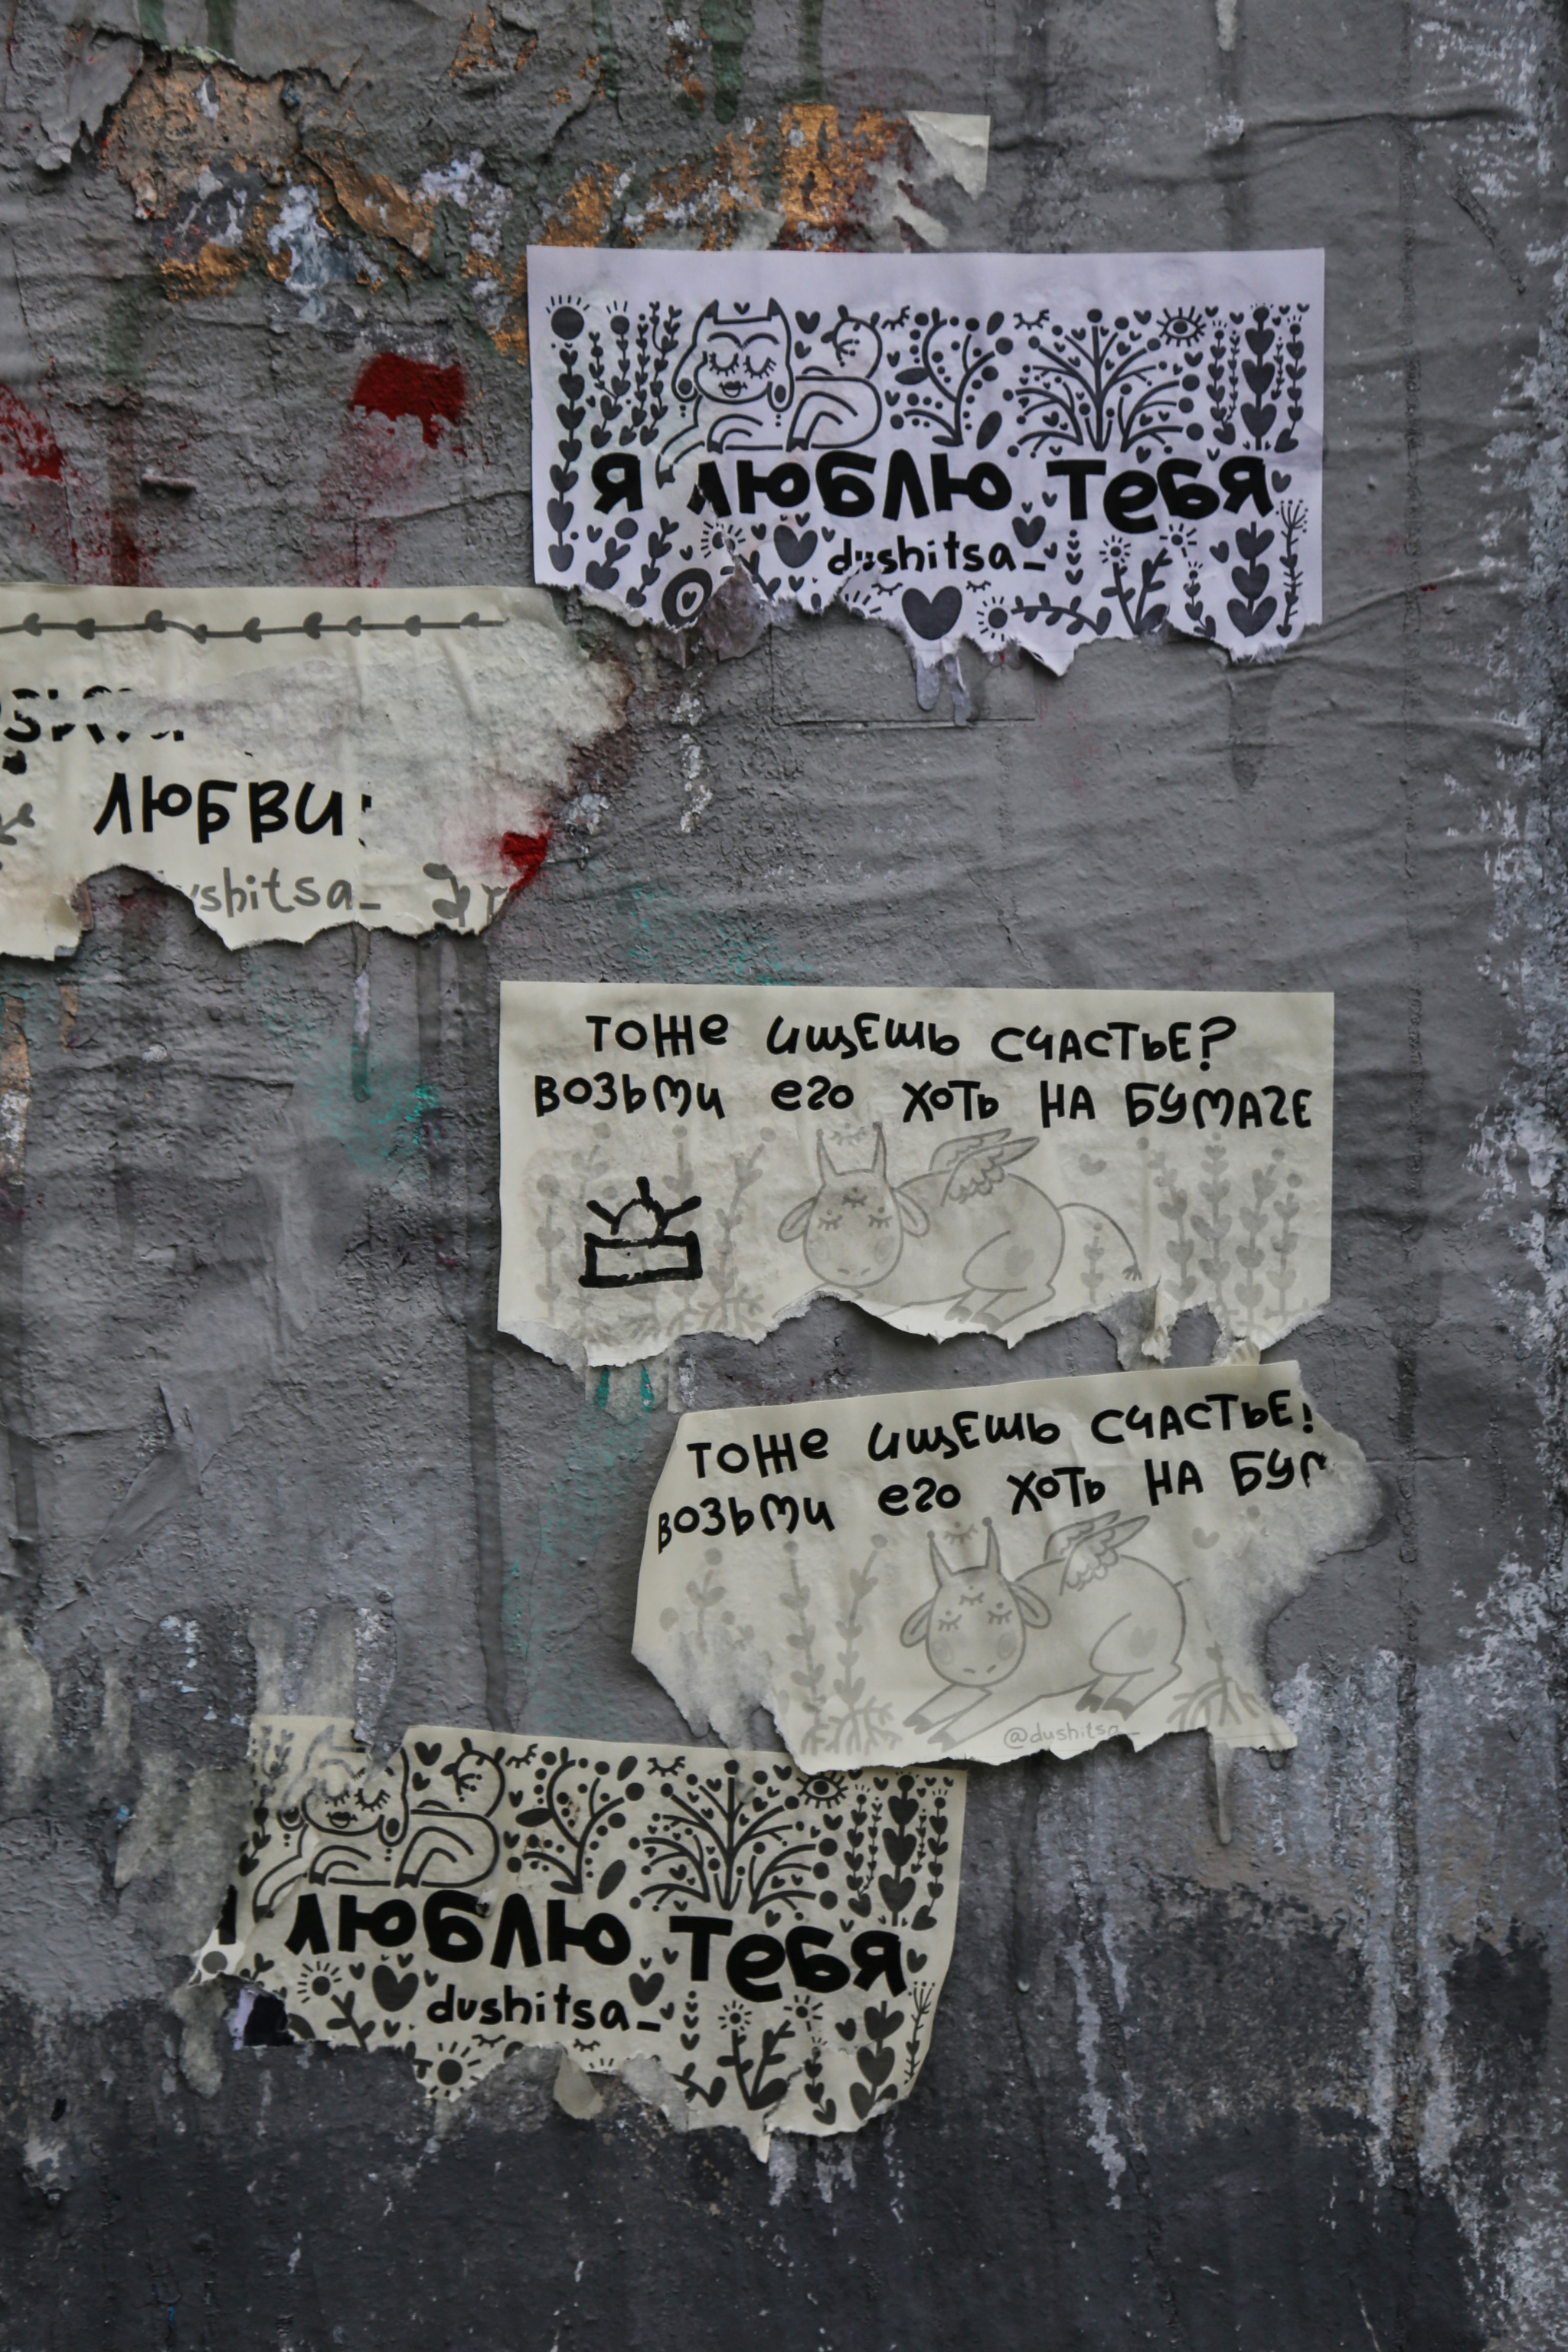 Я ЛЮБЛЮ ТЕБЯ
dushitsa_
ЛЮБВИ
shitsa_
ТОЖЕ ИЩЕШЬ СЧАСТЬЕ?
ВОЗЬМИ ЕГО ХОТЬ НА БУМАГЕ
ТОЖЕ ИЩЕШЬ СЧАСТЬЕ
ВОЗЬМИ ЕГО ХОТЬ НА БУМ
@dushitsa_
ЛЮБЛЮ ТЕБЯ
dushitsa_